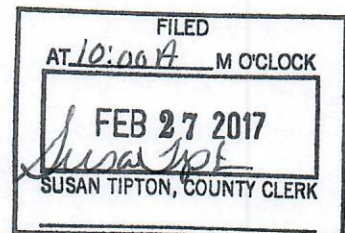 FILED
AT 10:00 A M O'CLOCK
FEB 27 2017
Susan Tipt
SUSAN TIPTON, COUNTY CLERK